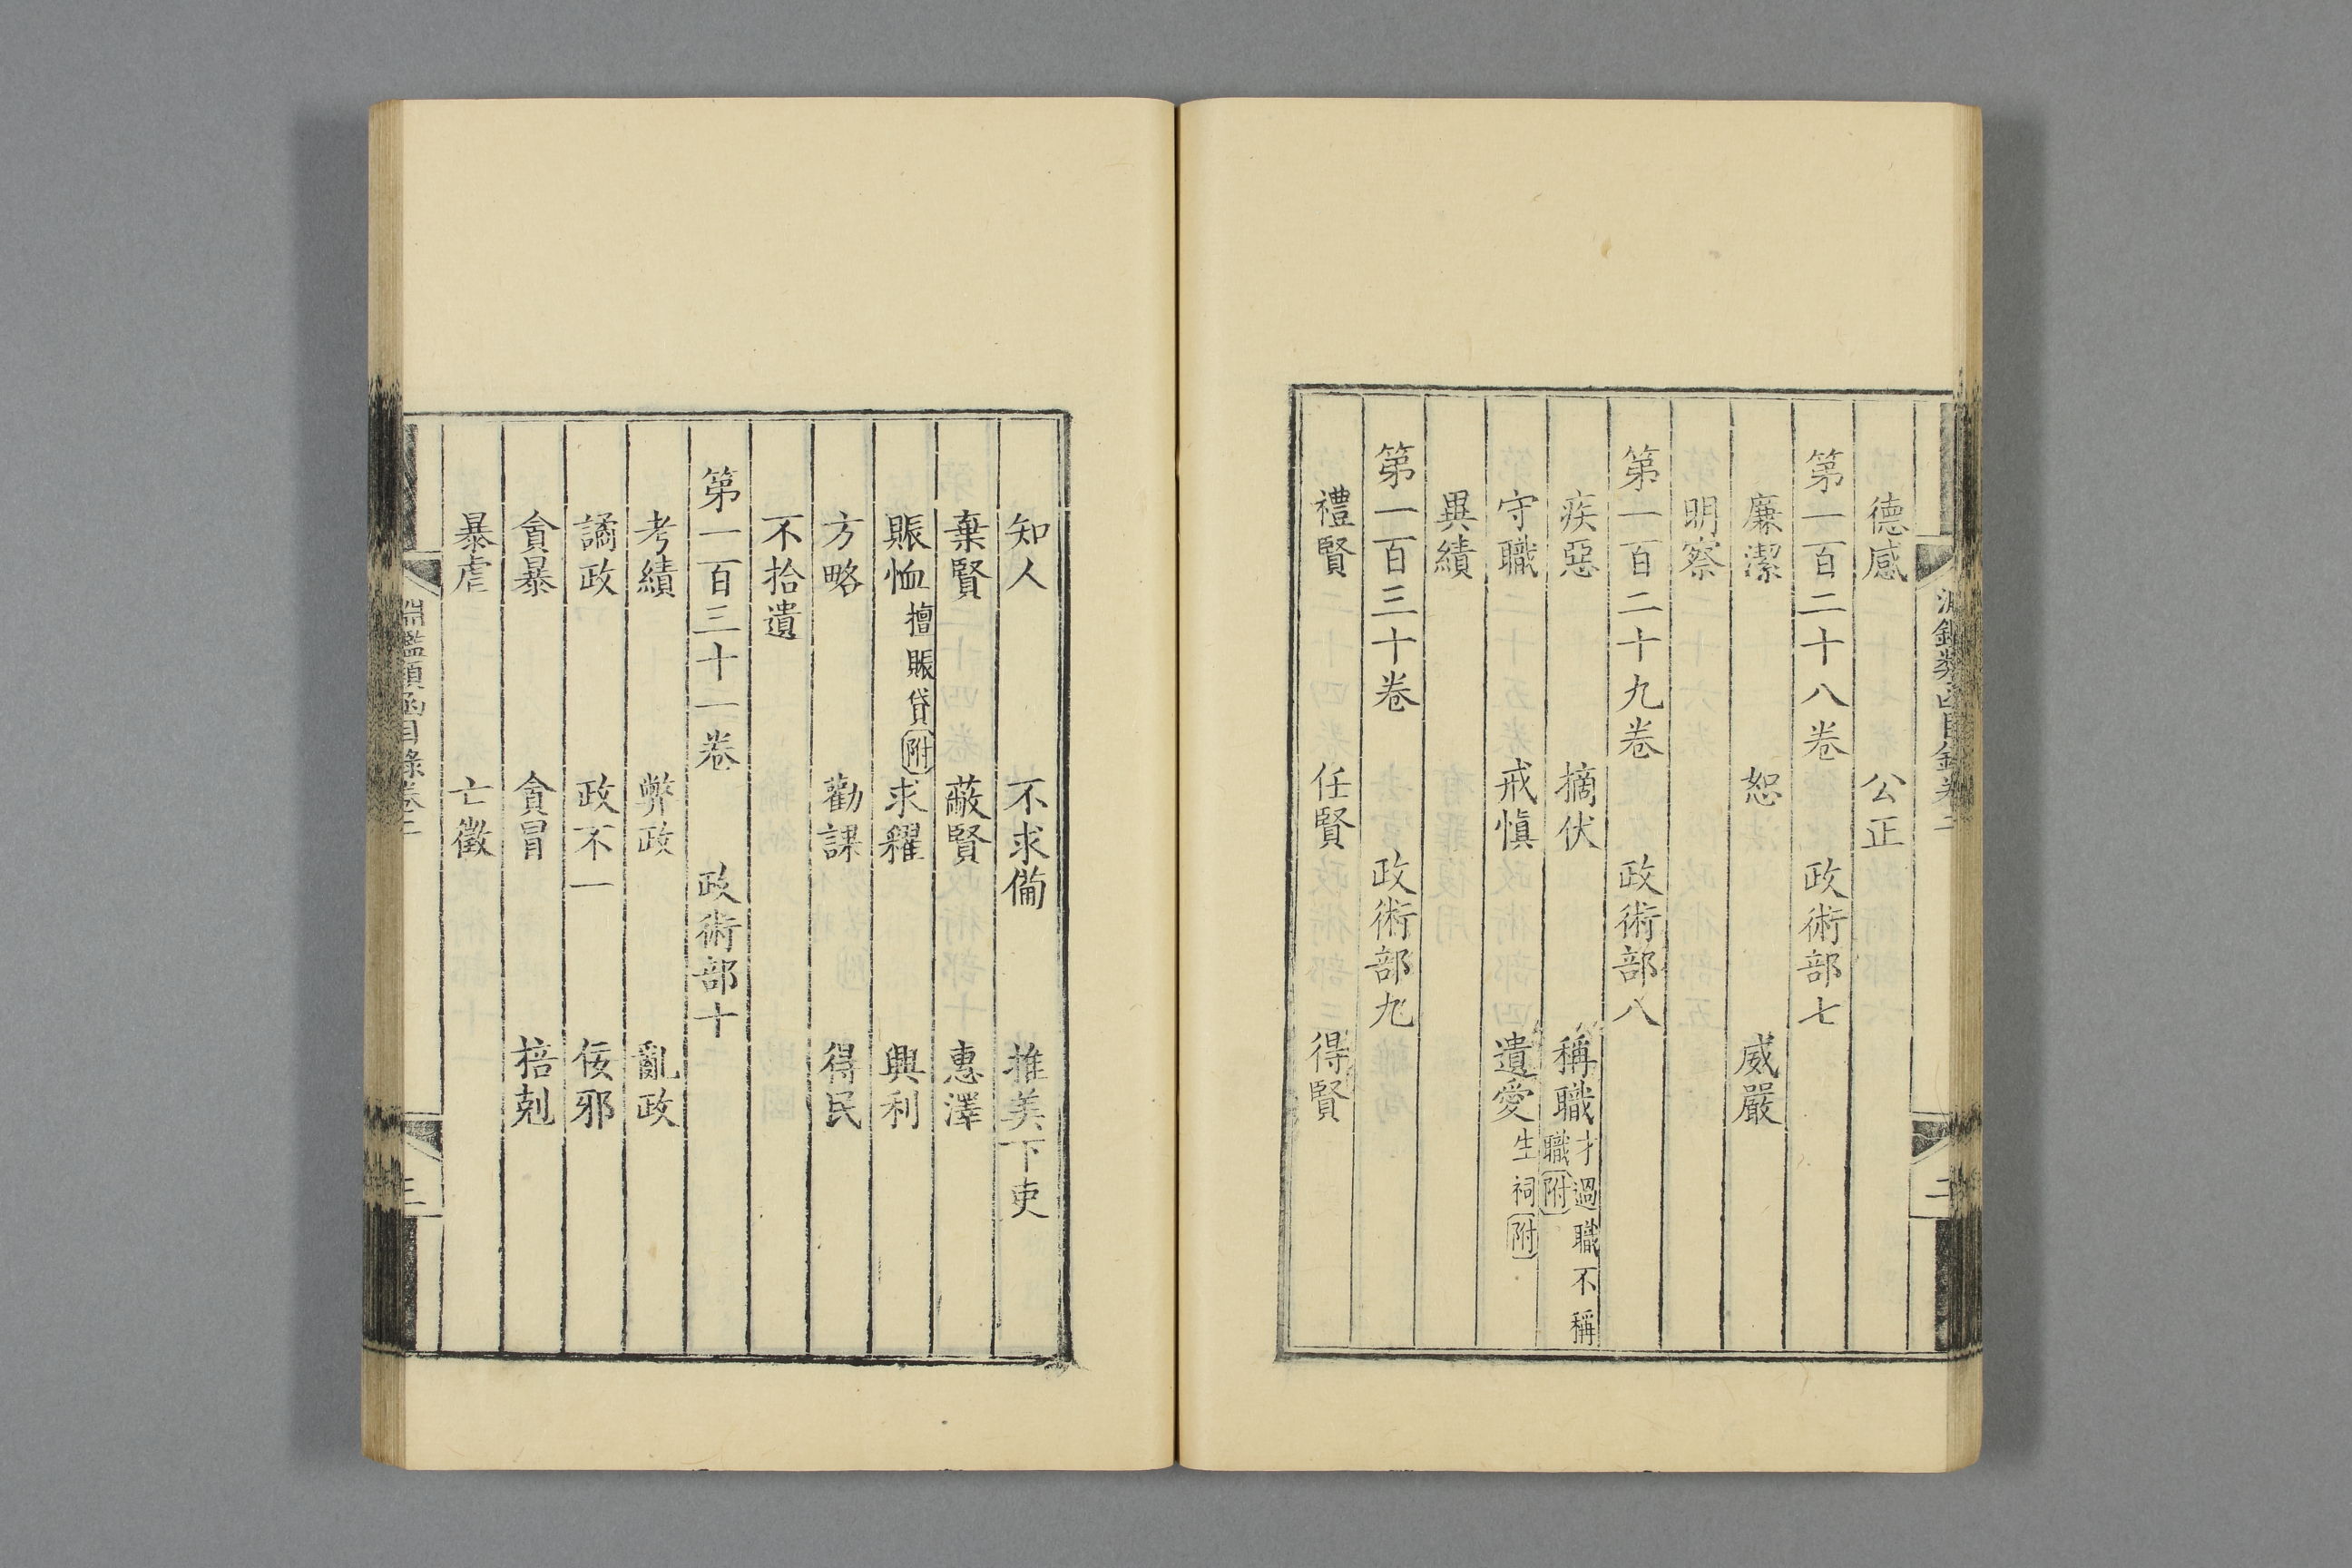 德感 公正
第一百二十八卷 政術部七
廉潔 恕 威嚴
明察
第一百二十九卷 政術部八
疾惡 摘伏 稱職 才過職不稱職附
守職 戒愼 遺愛 生祠附
異績
第一百三十卷 政術部九
禮賢 任賢 得賢
知人 不求備 推美下吏
棄賢 蔽賢 惠澤
賑恤 擅賑貸附 求糴 興利
方略 勸課 得民
不拾遺
第一百三十一卷 政術部十
考績 弊政 亂政
譎政 政不一 佞邪
貪暴 貪冒 掊剋
暴虐 亡徵
淵鑑類函目錄卷二 三